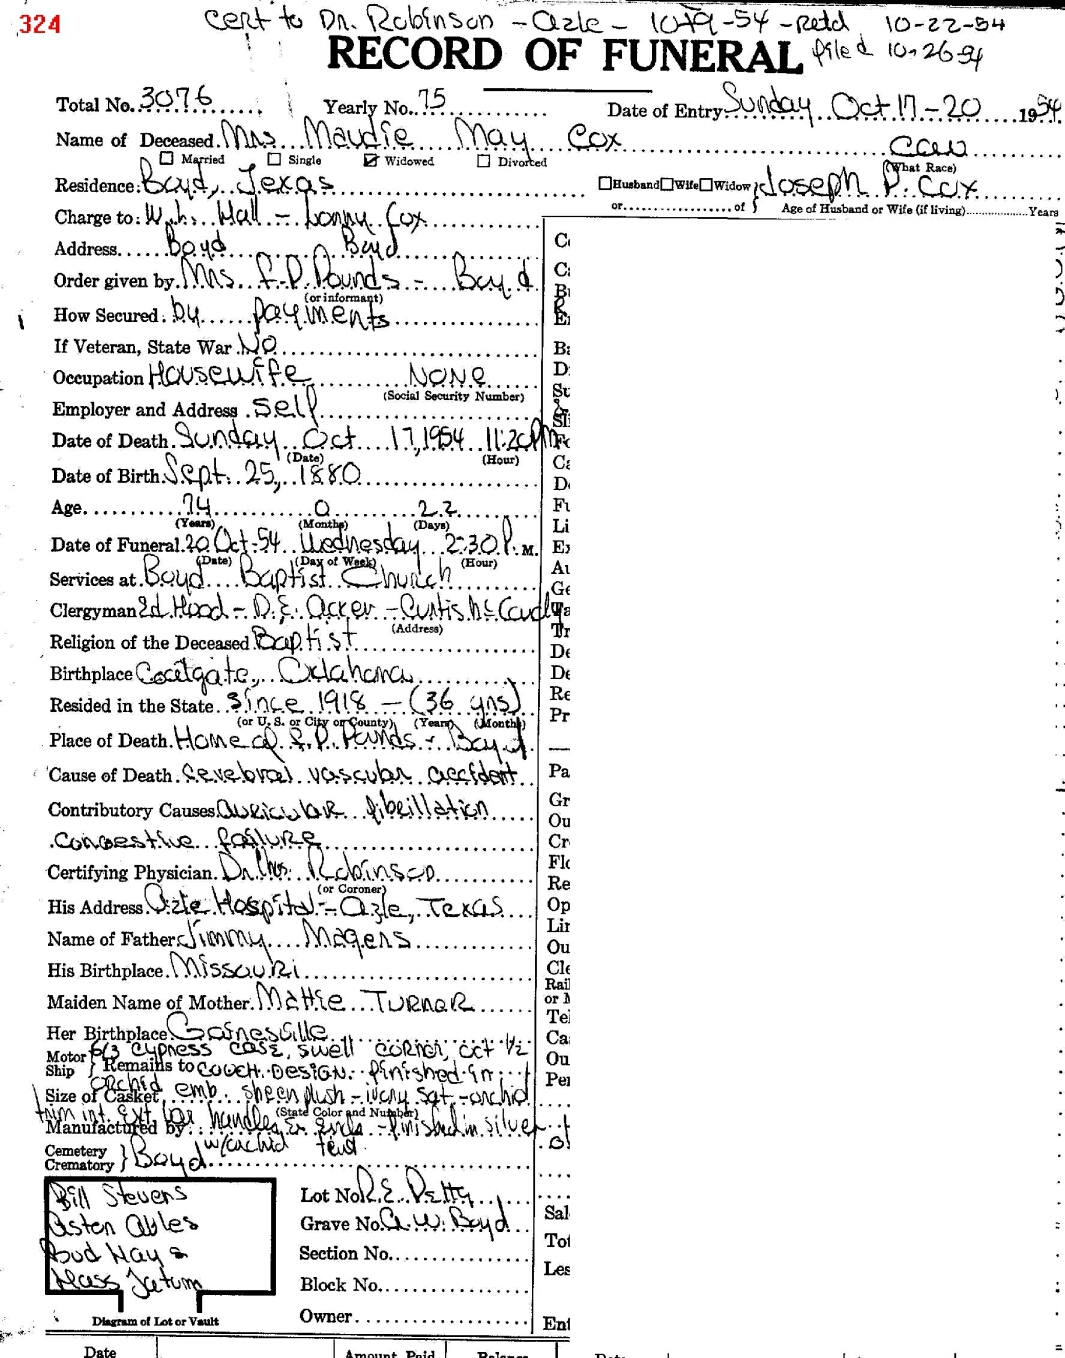 324
Cert to Dr. Robinson - Azle - 10-19-54 - Retd 10-22-54
RECORD OF FUNERAL filed 10-26-54
Total No. 3076 Yearly No. 75 Date of Entry Sunday Oct 17-20 1954
Name of Deceased Mrs Maudie May Cox Cau
Married Single Widowed Divorted (What Race)
Residence: Boyd, Texas Husband Wife Widow Joseph P. Cox
or of Age of Husband or Wife (if living) Years
Charge to: W.h. Hall - Lonny Cox
Address Boyd Boyd
Order given by Mrs S.P. Pounds - Boyd
(or informant)
How Secured by payments
If Veteran, State War No
Occupation Housewife None
(Social Security Number)
Employer and Address Self
Date of Death Sunday Oct 17, 1954 11:20 PM
(Date) (Hour)
Date of Birth Sept. 25, 1880
Age 74 0 22
(Years) (Months) (Days)
Date of Funeral 20 Oct-54 Wednesday 2:30 P. M.
(Date) (Day of Week) (Hour)
Services at Boyd Baptist Church
Clergyman Ed Hood - D.E. Acker - Curtis McCauly
(Address)
Religion of the Deceased Baptist
Birthplace Oklahoma
Resided in the State since 1918 - (36 yrs)
(or U. S. or City or County) (Years) (Month)
Place of Death Home of S.P. Pounds - Boyd
Cause of Death Cerebral vascular accident
Contributory Causes Auricular fibrillation
Congestive failure
Certifying Physician Dr. Robinson
(or Coroner)
His Address Azle Hospital - Azle, Texas
Name of Father Jimmy Magers
His Birthplace Missouri
Maiden Name of Mother Mattie Turner
Her Birthplace Gainesville
Motor Ship Remains to 6/3 cypress case, swell corner, oct 1/2
couch design finished in
Size of Casket orchid emb. sheen plush - ivory sat - orchid
(State Color and Number)
trim int. Ext bar handles - finished in silver
Manufactured by
w/orchid tent
Cemetery Crematory Boyd
Bill Stevens
Aston Ables
Bud Hays
Hass Tatum
Diagram of Lot or Vault
Lot No. R.E. Petty
Grave No. A.W. Boyd
Section No.
Block No.
Owner
Date Amount Paid Balance